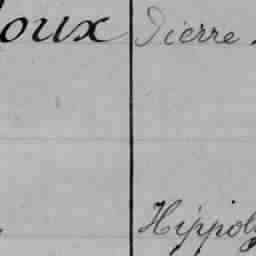 oux Pierre
Hippoly